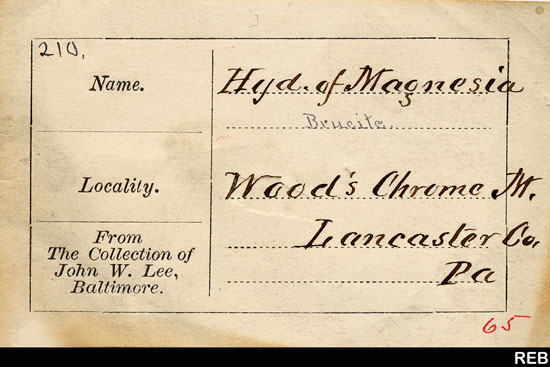 210.
Name.
Hyd. of Magnesia
Brucite.
Locality.
Wood's Chrome M.
Lancaster Co.
Pa
From
The Collection of
John W. Lee,
Baltimore.
65
REB